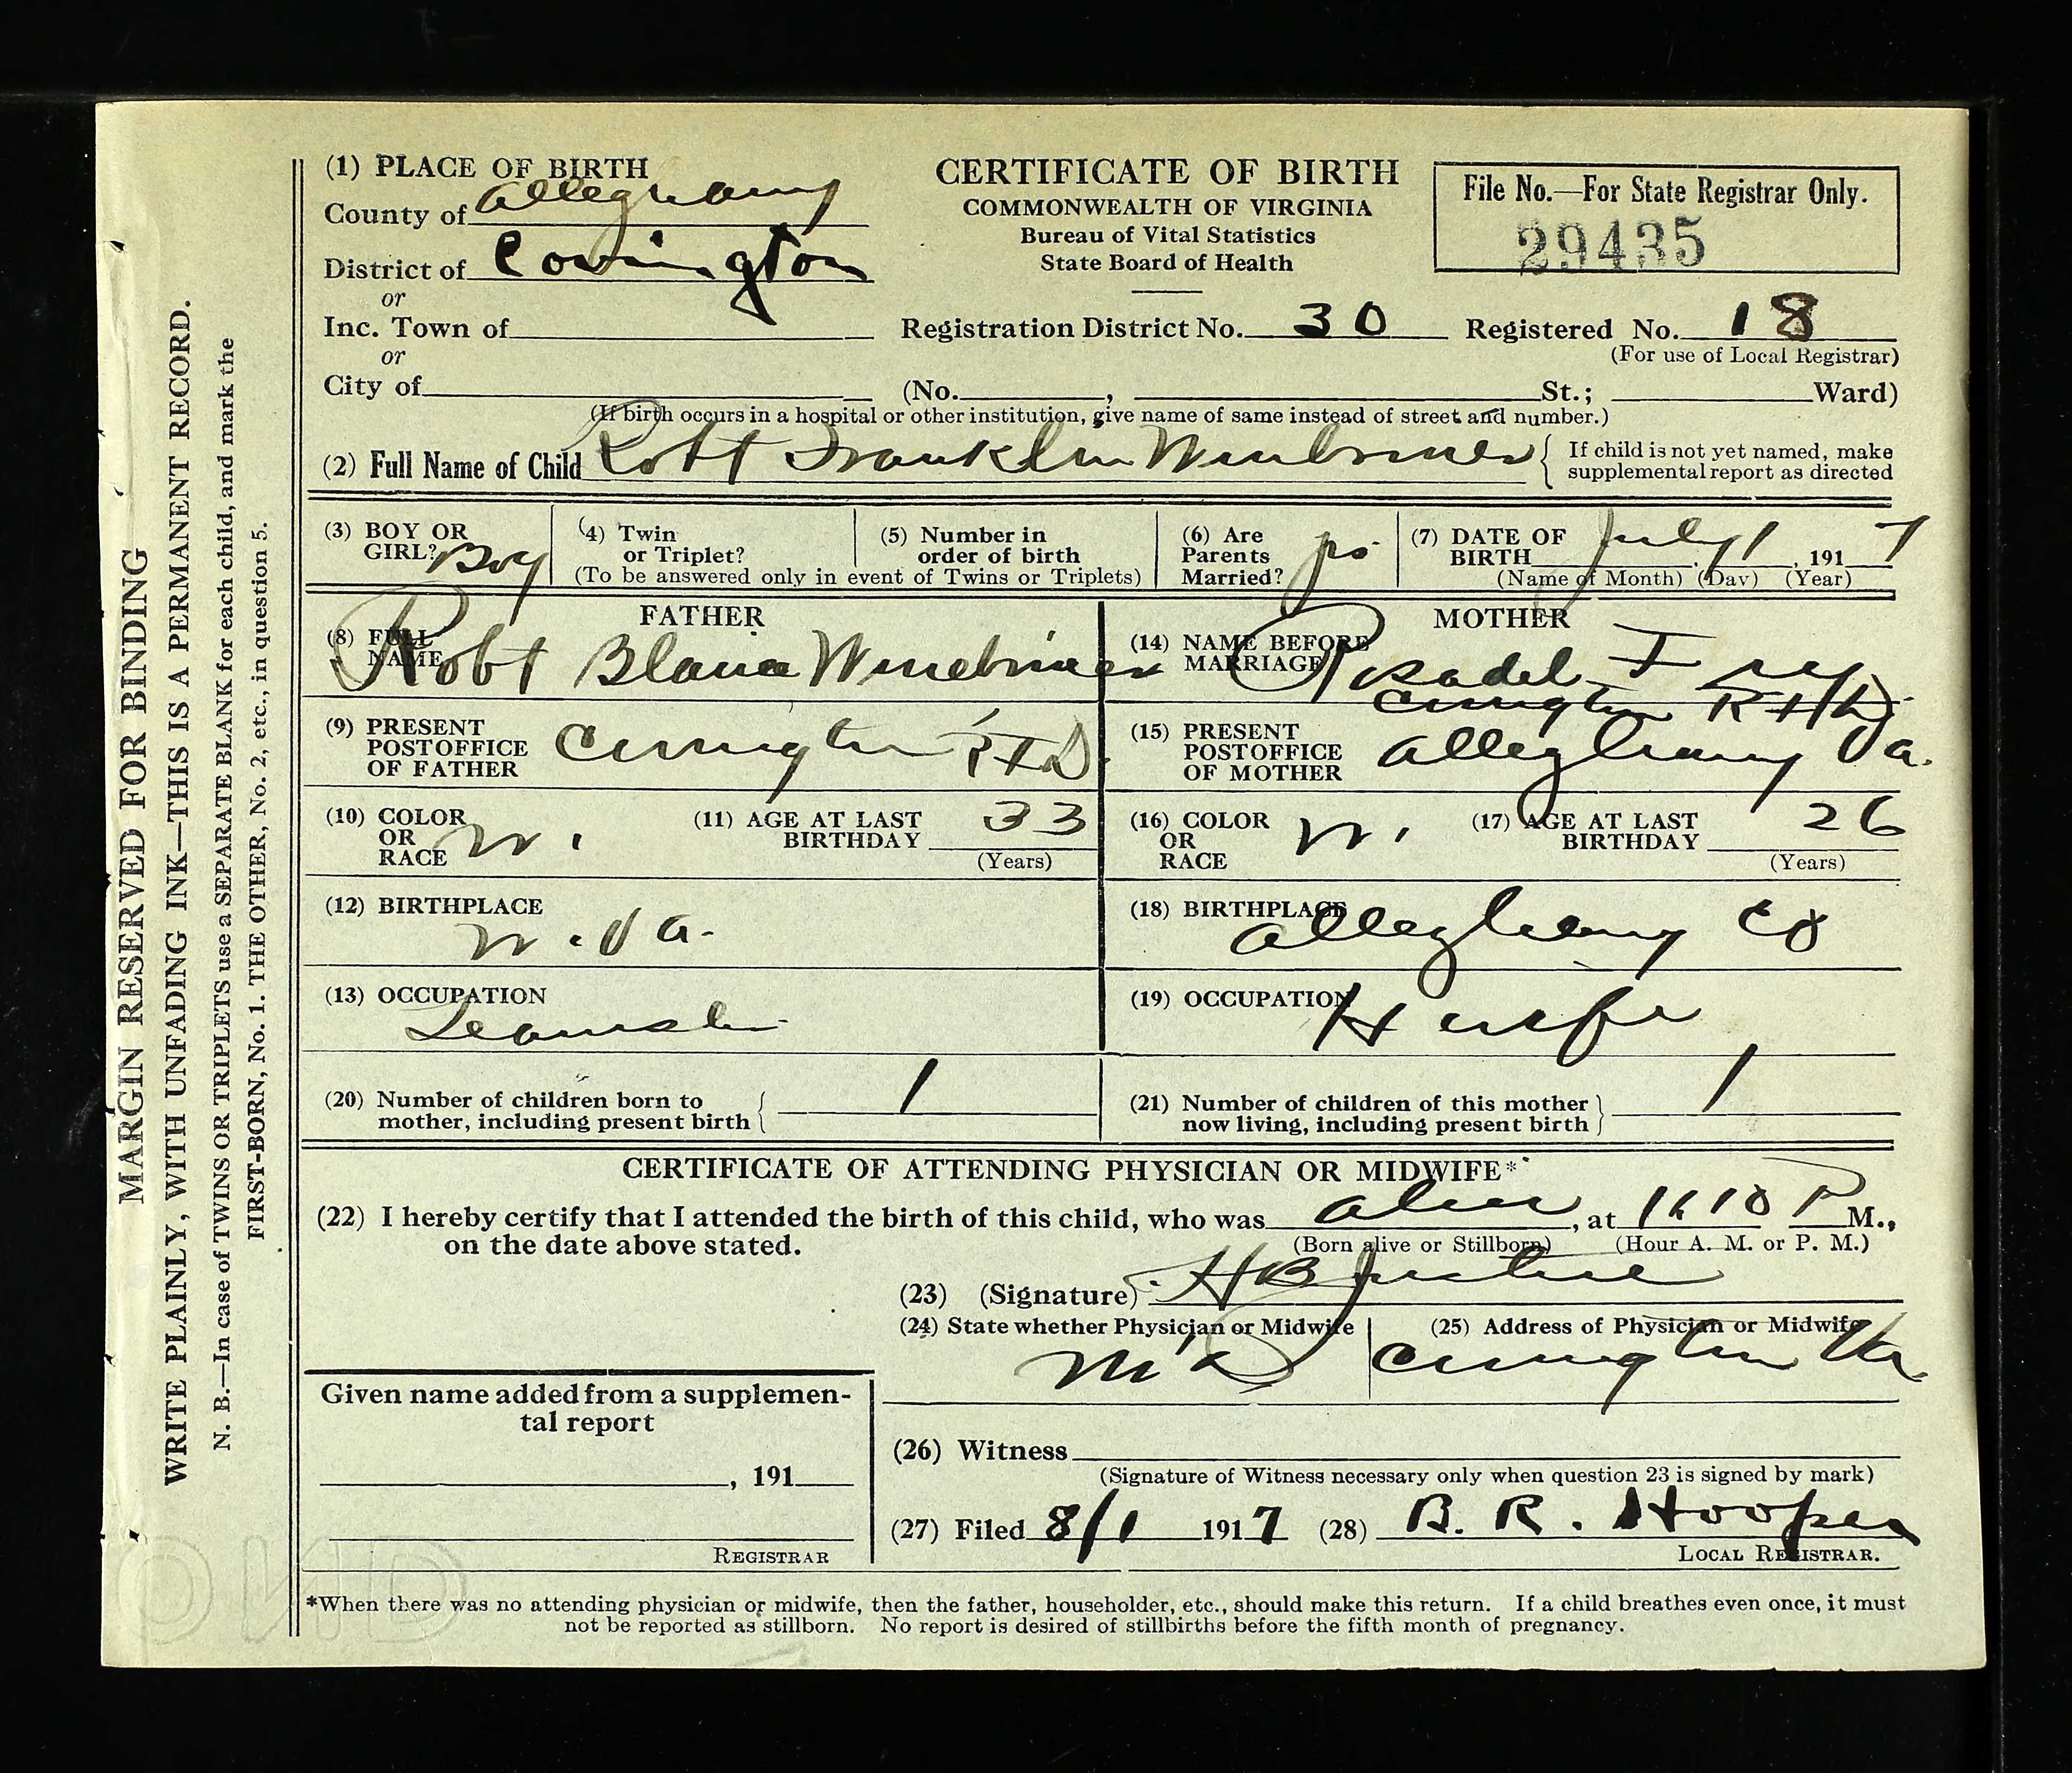 MARGIN RESERVED FOR BINDING
WRITE PLAINLY, WITH UNFADING INK—THIS IS A PERMANENT RECORD.
N. B.—In case of TWINS OR TRIPLETS use a SEPARATE BLANK for each child, and mark the
FIRST-BORN, No. 1. THE OTHER, No. 2, etc., in question 5.
(1) PLACE OF BIRTH
County of Alleghany
District of Covington
or
Inc. Town of
or
City of
CERTIFICATE OF BIRTH
COMMONWEALTH OF VIRGINIA
Bureau of Vital Statistics
State Board of Health
File No.—For State Registrar Only.
29435
Registration District No. 30 Registered No. 18
(For use of Local Registrar)
(No. , St.; Ward)
(If birth occurs in a hospital or other institution, give name of same instead of street and number.)
(2) Full Name of Child Robt Franklin Winebriner { If child is not yet named, make
supplemental report as directed
(3) BOY OR
GIRL? Boy
(4) Twin
or Triplet?
(5) Number in
order of birth
(To be answered only in event of Twins or Triplets)
(6) Are
Parents
Married?
(7) DATE OF
BIRTH July 1, 1917
(Name of Month) (Day) (Year)
FATHER
(8) FULL
NAME Robt Winebriner
(9) PRESENT
POSTOFFICE
OF FATHER Covington RFD
(10) COLOR
OR
RACE W.
(11) AGE AT LAST
BIRTHDAY 33
(Years)
(12) BIRTHPLACE
W. Va.
(13) OCCUPATION
Teamster
MOTHER
(14) NAME BEFORE
MARRIAGE Rosadel Fry
Covington RFD
(15) PRESENT
POSTOFFICE
OF MOTHER Alleghany Va.
(16) COLOR
OR
RACE W.
(17) AGE AT LAST
BIRTHDAY 26
(Years)
(18) BIRTHPLACE
Alleghany Co
(19) OCCUPATION
H wife
(20) Number of children born to
mother, including present birth { 1
(21) Number of children of this mother
now living, including present birth } 1
CERTIFICATE OF ATTENDING PHYSICIAN OR MIDWIFE*
(22) I hereby certify that I attended the birth of this child, who was alive, at P M.,
on the date above stated. (Born alive or Stillborn) (Hour A. M. or P. M.)
(23) (Signature) H B
(24) State whether Physician or Midwife
M.D.
(25) Address of Physician or Midwife
Covington Va.
Given name added from a supplemen-
tal report
, 191
REGISTRAR
(26) Witness
(Signature of Witness necessary only when question 23 is signed by mark)
(27) Filed 8/1 1917 (28) B. R. Hooper
LOCAL REGISTRAR.
*When there was no attending physician or midwife, then the father, householder, etc., should make this return. If a child breathes even once, it must
not be reported as stillborn. No report is desired of stillbirths before the fifth month of pregnancy.